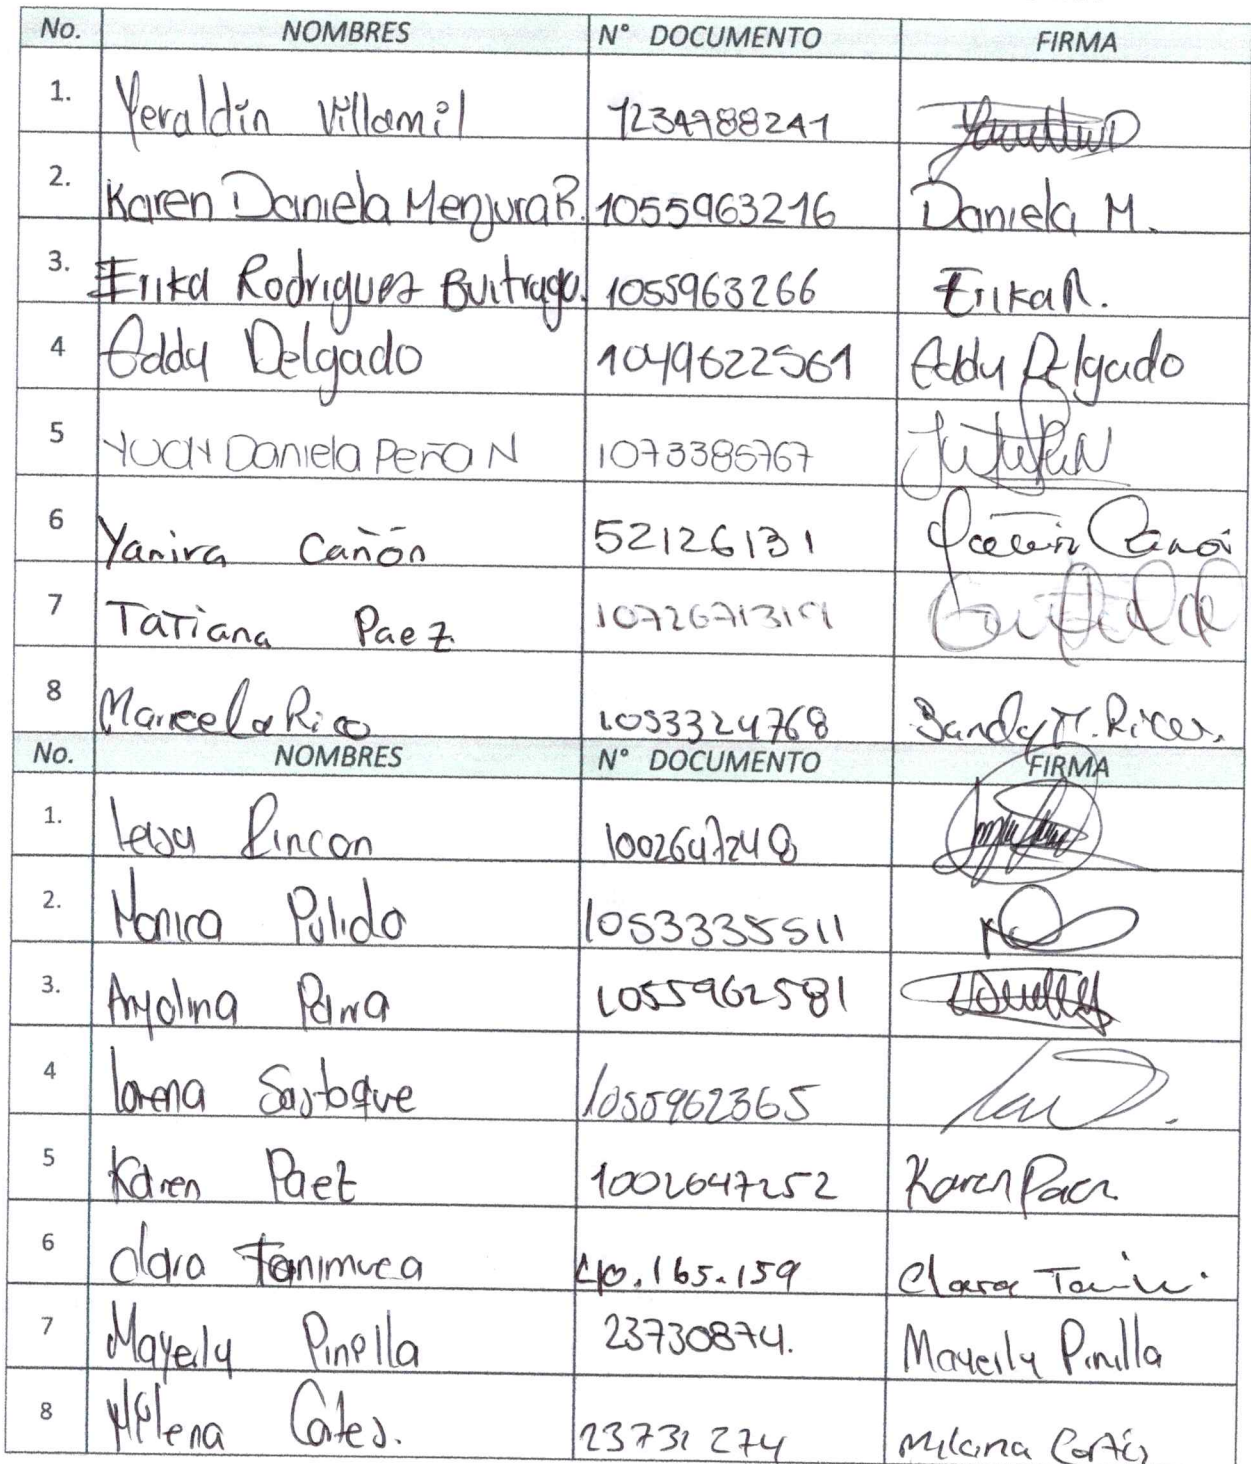 No. NOMBRES N° DOCUMENTO FIRMA
1. Yeraldin Villamil 1234788241
2. Karen Daniela Menjura R. 1055963216 Daniela M.
3. Erika Rodriguez Buitrago. 1055963266 Erika R.
4 Eddy Delgado 1049622561 Eddy Delgado
5 YUDY Daniela Peña N 1073385767
6 Yanira Cañón 52126131
7 Tatiana Paez
8 Marcela Rico 1053324768 Sandy M. Rico.
No. NOMBRES N° DOCUMENTO FIRMA
1. Rincon 1002647248
2. Monica Pulido 1053335511
3. Parra 1055962581
4 lorena Sastoque 1055962365
5 Karen Paez 1002647252 Karen Paez
6 Clara Tanimuca 40.165.159 Clara
7 Mayerly Pinella 23730874. Mayerly Pinilla
8 Milena Cortes. 23731274 Milena Cortés